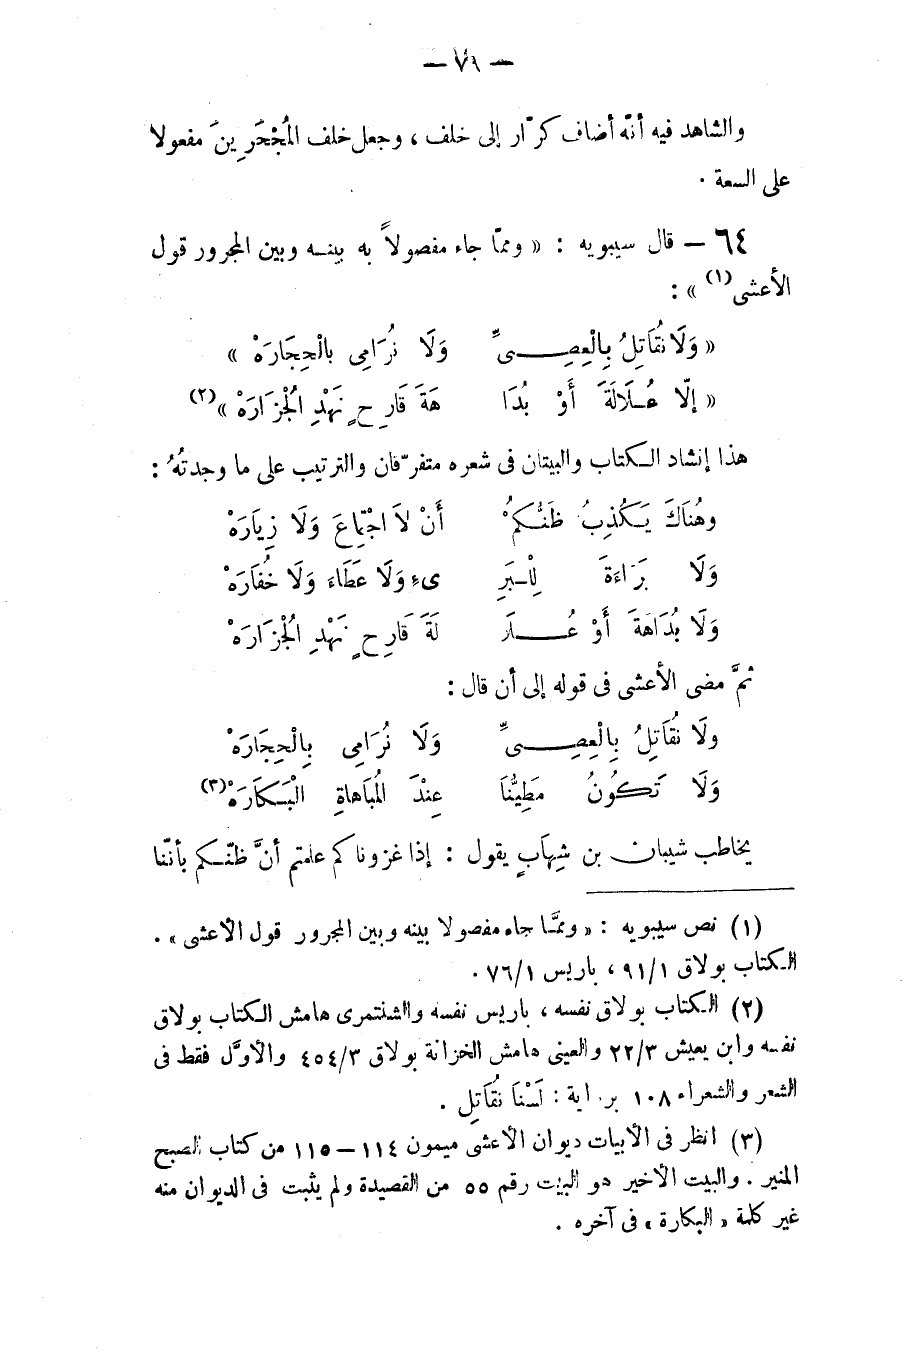 — ٧٩ —
والشاهد فيه أنّه أضاف كرّار إلى خلف ، وجعل خلف المُجْحَرِينَ مفعولا
على السعة .
٦٤ — قال سيبويه : « وممّا جاء مفصولاً به بينه وبين المجرور قول
الأعشى(١) » :
« وَلَا نُقَاتِلُ بِالْعِصِىِّ وَلَا نُرَامِى بالْحِجَارَهْ »
« إلّا عُلَالَةَ أَوْ بُدَا هَةَ قَارِحٍ نَهْدِ الْجُزَارَهْ »(٢)
هذا إنشاد الكتاب والبيتان فى شعره متفرّقان والترتيب على ما وجدتُهُ :
وهُنَاكَ يَكْذِبُ ظَنُّكُمْ أَنْ لاَ اجْتِمَاعَ وَلَا زِيَارَهْ
وَلَا بَرَاءَةَ لِلْبَرِ ىءِ وَلَا عَطَاءَ وَلَا خُفَارَهْ
وَلَا بُدَاهَةَ أَوْ عُــلَا لَةَ قَارِحٍ نَهْدِ الْجُزَارَهْ
ثمَّ مضى الأعشى فى قوله إلى أن قال :
ولَا نُقَاتِلُ بِالْعِصِىِّ وَلَا نُرَامِى بِالْحِجَارَهْ
وَلَا تَكُونُ مَطِيُّنَا عِنْدَ الْمُبَاهاةِ الْبَكَارَهْ(٣)
يخاطب شيبان بن شِهَابٍ يقول : إذا غزوناكم علمتم أنَّ ظنّكم بأننّا
(١) نص سيبويه : « وممَّا جاء مفصولا بينه وبين المجرور قول الأعشى » .
الكتاب بولاق ٩١/١ ، باريس ٧٦/١ .
(٢) الكتاب بولاق نفسه ، باريس نفسه والشنتمرى هامش الكتاب بولاق
نفسه وابن يعيش ٢٢/٣ والعينى هامش الخزانة بولاق ٤٥٤/٣ والأوَّل فقط فى
الشعر والشعراء ١٠٨ برواية : لَسْنَا نُقَاتِل .
(٣) انظر فى الأبيات ديوان الأعشى ميمون ١١٤ — ١١٥ من كتاب الصبح
المنير . والبيت الأخير هو البيت رقم ٥٥ من القصيدة ولم يثبت فى الديوان منه
غير كلمة « البكارة » فى آخره .